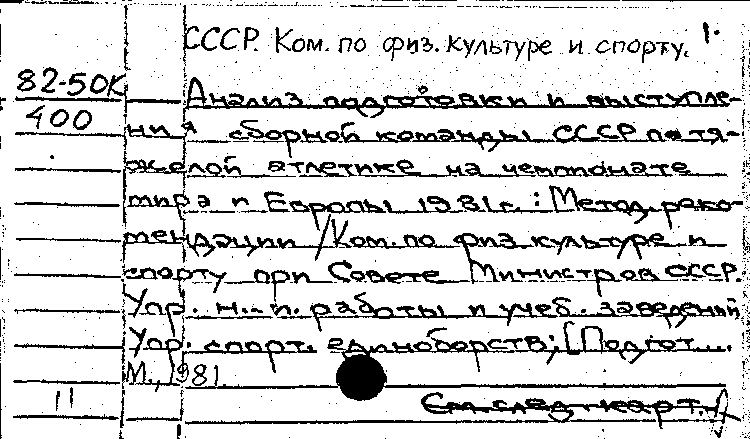 СССР. Ком. по физ. культуре и спорту. 1.
82-50К
400
Анализ подготовки и выступле-
ния сборной команды СССР по тя-
желой атлетике на чемпионате
мира и Европы 1981 г. : Метод. реко-
мендации / Ком. по физ. культуре и
спорту при Совете Министров СССР.
Упр. н.-и. работы и учеб. заведений
Упр. спорт. единоборств; [Подгот...
М., 1981.
11
См. след. карт.